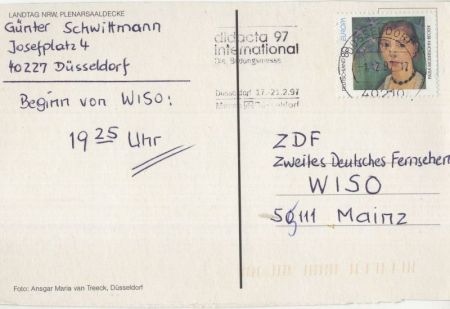 LANDTAG NRW, PLENARSAALDECKE
Günter Schwittmann
Josefplatz 4
40227 Düsseldorf
Beginn von WISO:
19 25 Uhr
Foto: Ansgar Maria van Treeck, Düsseldorf
didacta 97
international
Die Bildungsmesse
Düsseldorf 17.-21.2.97
Messe Düsseldorf
EUROPA
DEUTSCHLAND
PAULA MODERSOHN-BECKER
40210
ZDF
Zweites Deutsches Fernsehen
WISO
55111 Mainz